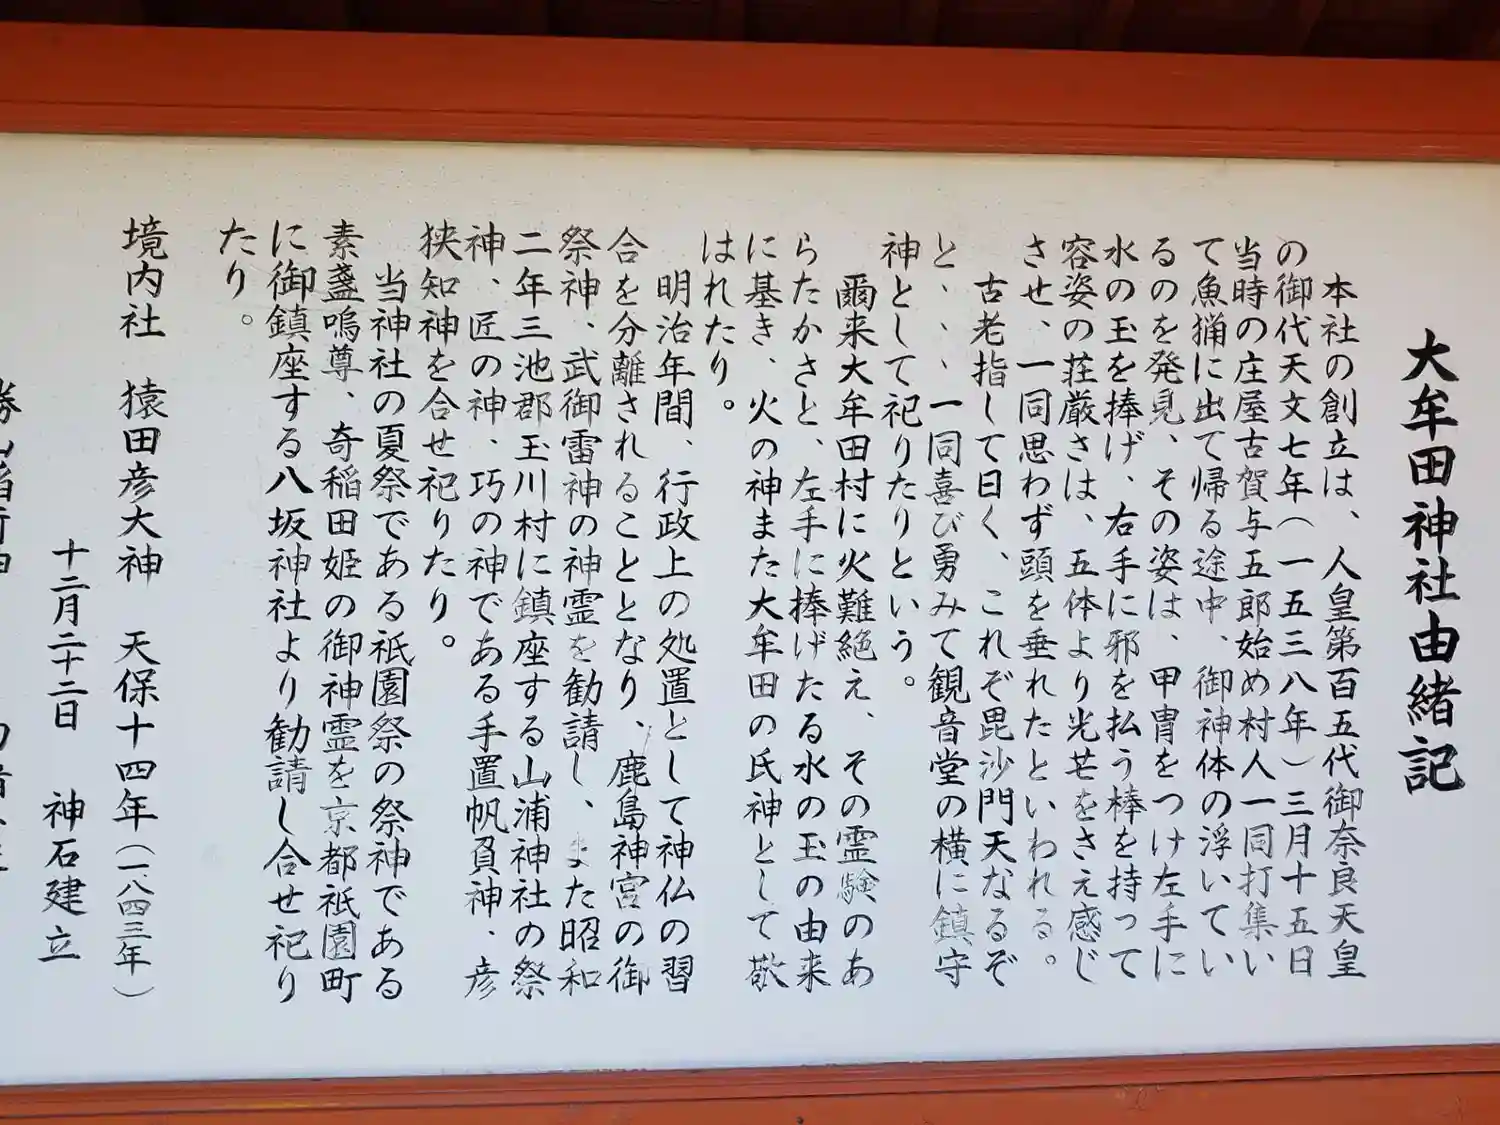 大牟田神社由緒記
本社の創立は、人皇第百五代御奈良天皇
の御代天文七年(一五三八年)三月十五日
当時の庄屋古賀与五郎始め村人一同打集い
て魚猟に出て帰る途中、御神体の浮いてい
るのを発見、その姿は、甲冑をつけ左手に
水の玉を捧げ、右手に邪を払う棒を持って
容姿の荘厳さは、五体より光芒をさえ感じ
させ、一同思わず頭を垂れたといわれる。
古老指して曰く、これぞ毘沙門天なるぞ
と、、、一同喜び勇みて観音堂の横に鎮守
神として祀りたりという。
爾来大牟田村に火難絶え、その霊験のあ
らたかさと、左手に捧げたる水の玉の由来
に基き、火の神また大牟田の氏神として敬
はれたり。
明治年間、行政上の処置として神仏の習
合を分離されることとなり、鹿島神宮の御
祭神、武御雷神の神霊を勧請し、また昭和
二年三池郡玉川村に鎮座する山浦神社の祭
神、匠の神、巧の神である手置帆負神、彦
狭知神を合せ祀りたり。
当神社の夏祭である祇園祭の祭神である
素盞嗚尊、奇稲田姫の御神霊を京都祇園町
に御鎮座する八坂神社より勧請し合せ祀り
たり。
境内社 猿田彦大神 天保十四年(一八四三年)
十二月二十二日 神石建立